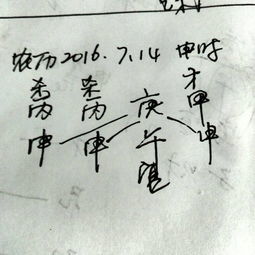 农历2016.7.14 申时
杀 杀 才
丙 丙 庚 甲
申 申 午 申